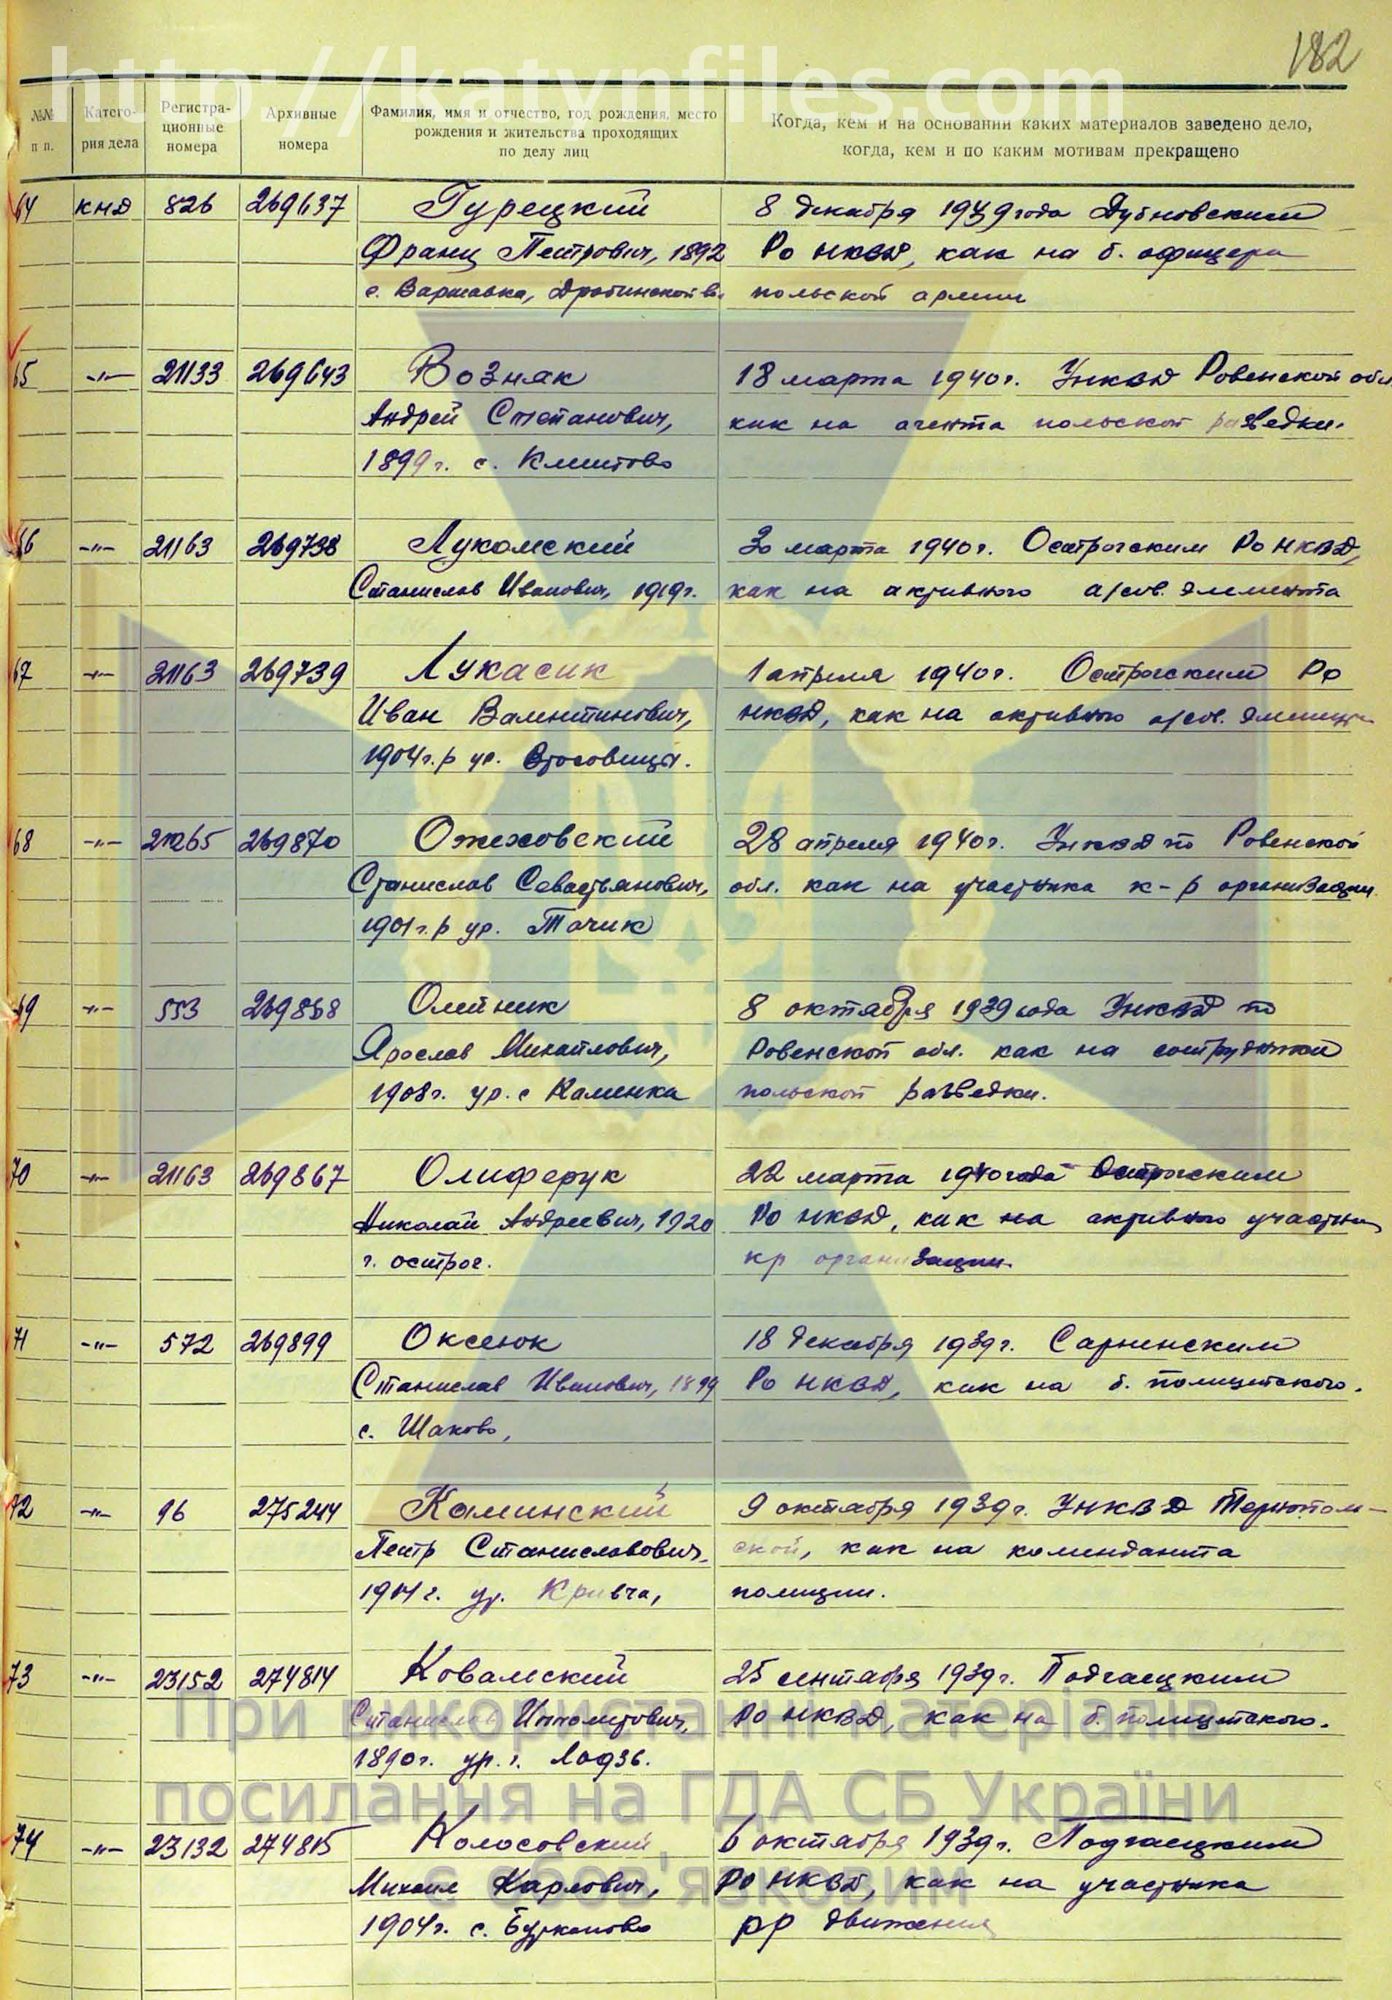 182
http://katynfiles.com
№№ п п.
Катего-
рия дела
Регистра-
ционные
номера
Архивные
номера
Фамилия, имя и отчество, год рождения, место
рождения и жительства проходящих
по делу лиц
Когда, кем и на основании каких материалов заведено дело,
когда, кем и по каким мотивам прекращено
64 КНД 826 269637 Гурецкий 8 декабря 1939 года Дубновским
Франц Петрович, 1892 Ро НКВД, как на б. офицера
с. Варшавка, польской армии
65 -"- 21133 269643 Возняк 18 марта 1940 г. УНКВД Ровенской обл.
Андрей Степанович, как на агента польской разведки.
1899 г. с.
66 -"- 21163 269738 Лукомский 30 марта 1940 г. Острогским Ро НКВД,
Станислав Иванович, 1919 г. как на активного а/сов. элемента
67 -"- 21163 269739 Лукасик 1 апреля 1940 г. Острогским Ро
Иван Валентинович, НКВД, как на активного а/сов.
1904 г.р ур.
68 -"- 21265 269870 Ожеховский 28 апреля 1940 г. УНКВД по Ровенской
Станислав Севастьянович, обл. как на участника к-р организации.
1901 г.р ур. Точик
69 -"- 553 269868 Олейник 8 октября 1939 года УНКВД по
Ярослав Михайлович, Ровенской обл. как на сотрудника
1908 г. ур. с Каменка польской разведки.
70 -"- 21163 269867 Олиферук 22 марта 1940 года Острогским
Николай Андреевич, 1920 Ро НКВД, как на активного участника
г. острог. кр организации.
71 -"- 572 269899 Оксеюк 18 декабря 1939 г. Сарненским
Станислав Иванович, 1899 Ро НКВД, как на б. полицейского.
с. Шахово,
72 -"- 96 275244 Каминский 9 октября 1939 г. УНКВД Тернополь-
Петр Станиславович, ской, как на коменданта
1904 г. ур. Кривча, полиции.
73 -"- 23152 274814 Ковальский 25 сентября 1939 г. Подгаецким
Станислав Ипполитович, Ро НКВД, как на б. полицейского.
1890 г. ур. г. Лодзь.
При використанні матеріалів
посилання на ГДА СБ України
є обов'язковим
74 -"- 23132 274815 Колосовский 6 октября 1939 г. Подгаецким
Михаил Карлович, Ро НКВД, как на участника
1904 г. с. Бурканово рр движения